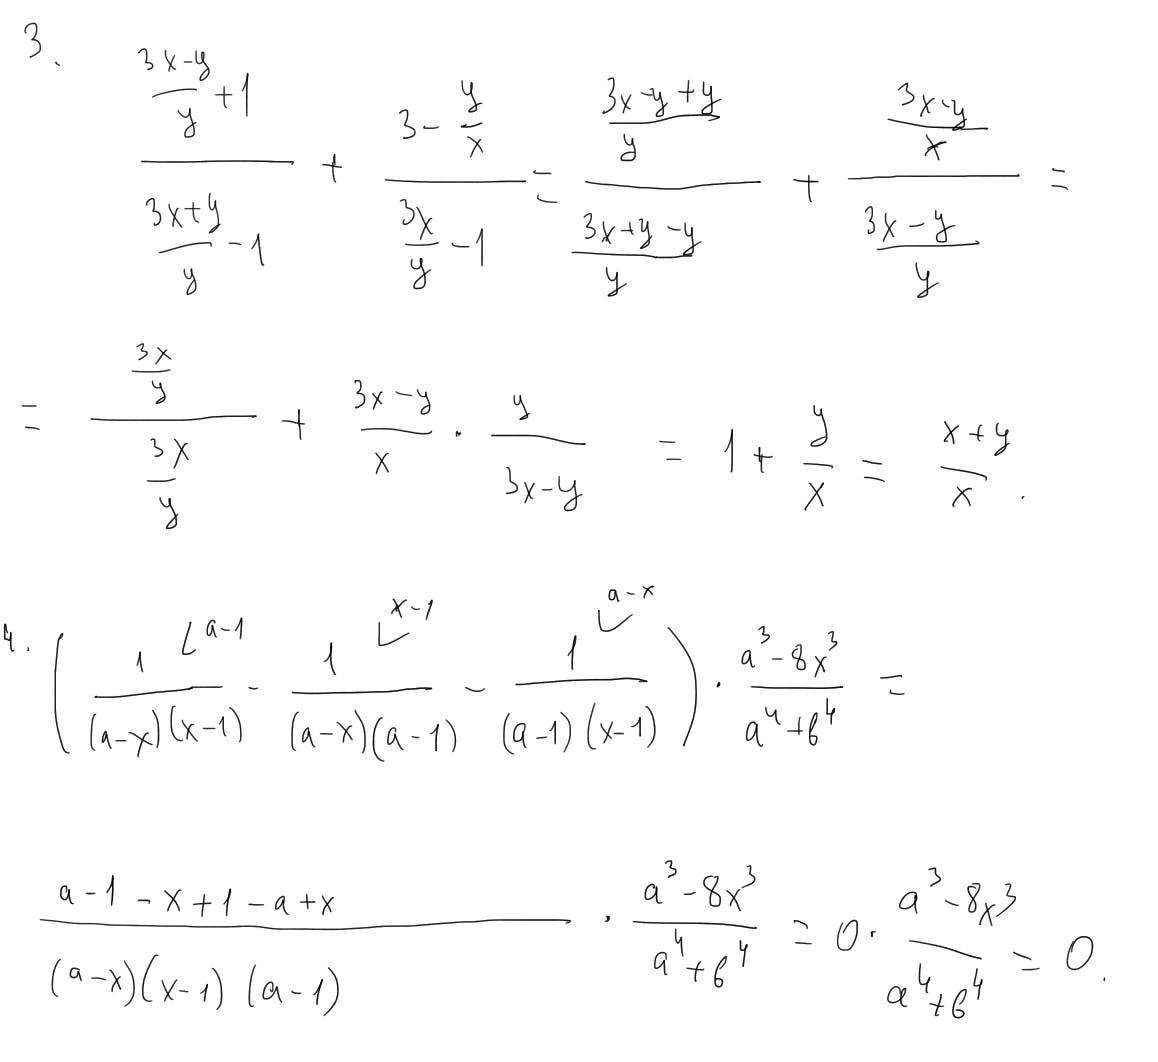 3. \frac{\frac{3x-y}{y}+1}{\frac{3x+y}{y}-1} + \frac{3-\frac{y}{x}}{\frac{3x}{y}-1} = \frac{\frac{3x-y+y}{y}}{\frac{3x+y-y}{y}} + \frac{\frac{3x-y}{x}}{\frac{3x-y}{y}} =
= \frac{\frac{3x}{y}}{\frac{3x}{y}} + \frac{3x-y}{x} \cdot \frac{y}{3x-y} = 1 + \frac{y}{x} = \frac{x+y}{x}.
4. \left( \frac{1^{\llcorner a-1}}{(a-x)(x-1)} - \frac{1^{\llcorner x-1}}{(a-x)(a-1)} - \frac{1^{\llcorner a-x}}{(a-1)(x-1)} \right) \cdot \frac{a^3-8x^3}{a^4+b^4} =
\frac{a-1-x+1-a+x}{(a-x)(x-1)(a-1)} \cdot \frac{a^3-8x^3}{a^4+b^4} = 0 \cdot \frac{a^3-8x^3}{a^4+b^4} = 0.